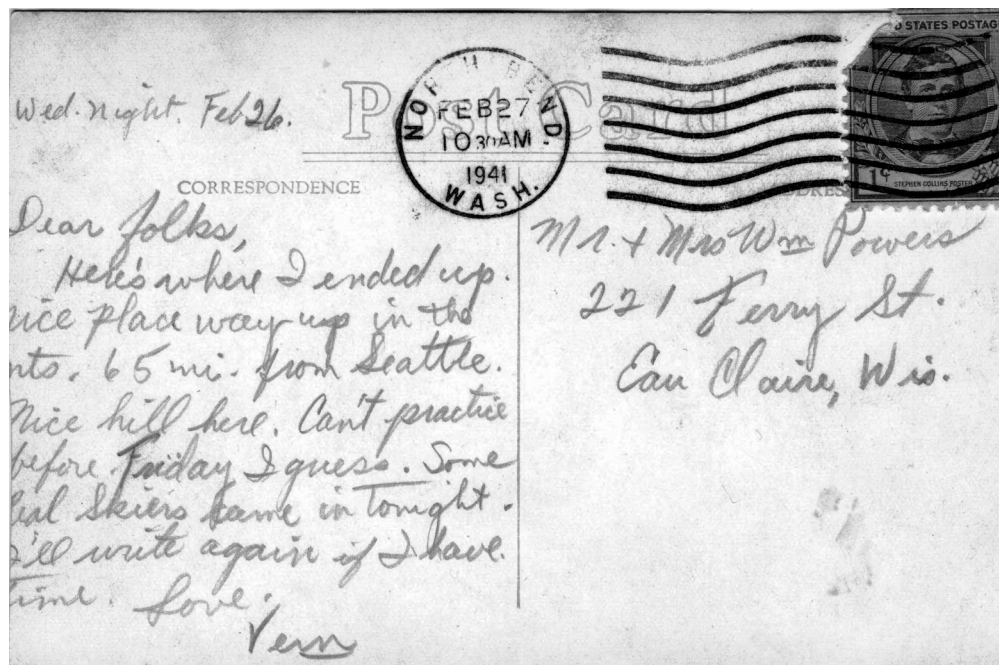 Wed. Night. Feb 26.
Post Card
NORTH BEND.
FEB 27
10 30 AM
1941
WASH.
D STATES POSTAG
1¢
STEPHEN COLLINS FOSTER
CORRESPONDENCE
DRESS
Dear folks,
Here's where I ended up.
nice place way up in the
mts. 65 mi. from Seattle.
Nice hill here. Can't practice
before Friday I guess. Some
Skiers came in Tonight.
I'll write again if I have
Time. Love.
Vern
Mr. + Mrs Wm Powers
221 Ferry St.
Eau Claire, Wis.